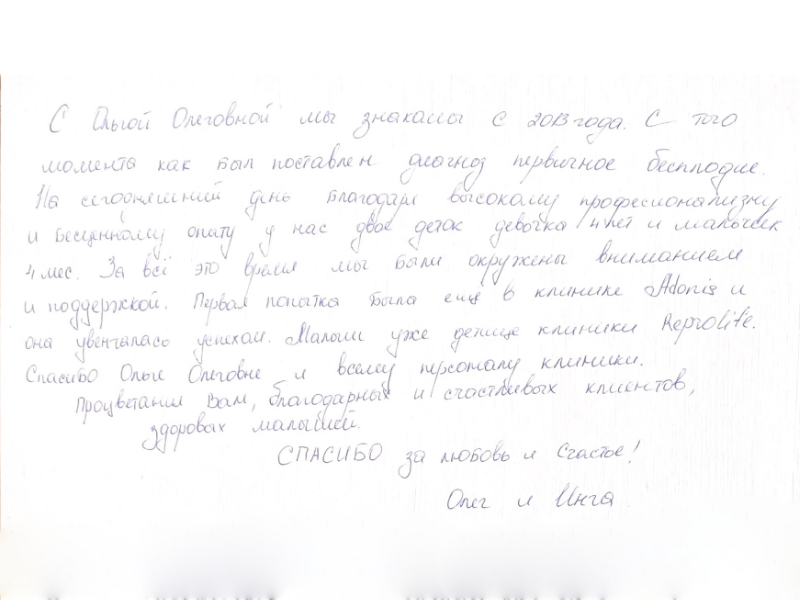 С Ольгой Олеговной мы знакомы с 2013 года. С того
момента как был поставлен диагноз первичное бесплодие.
На сегодняшний день благодаря высокому професионализму
и бесценному опыту у нас двое деток девочка 4 лет и мальчик
4 мес. За всё это время мы были окружены вниманием
и поддержкой. Первая попытка была ещё в клинике Adonis и
она увенчалась успехом. Малыш уже детище клиники ReproLife.
Спасибо Ольге Олеговне и всему персоналу клиники.
Процветания Вам, благодарных и счастливых клиентов,
здоровых малышей.
СПАСИБО за любовь и счастье!
Олег и Инга